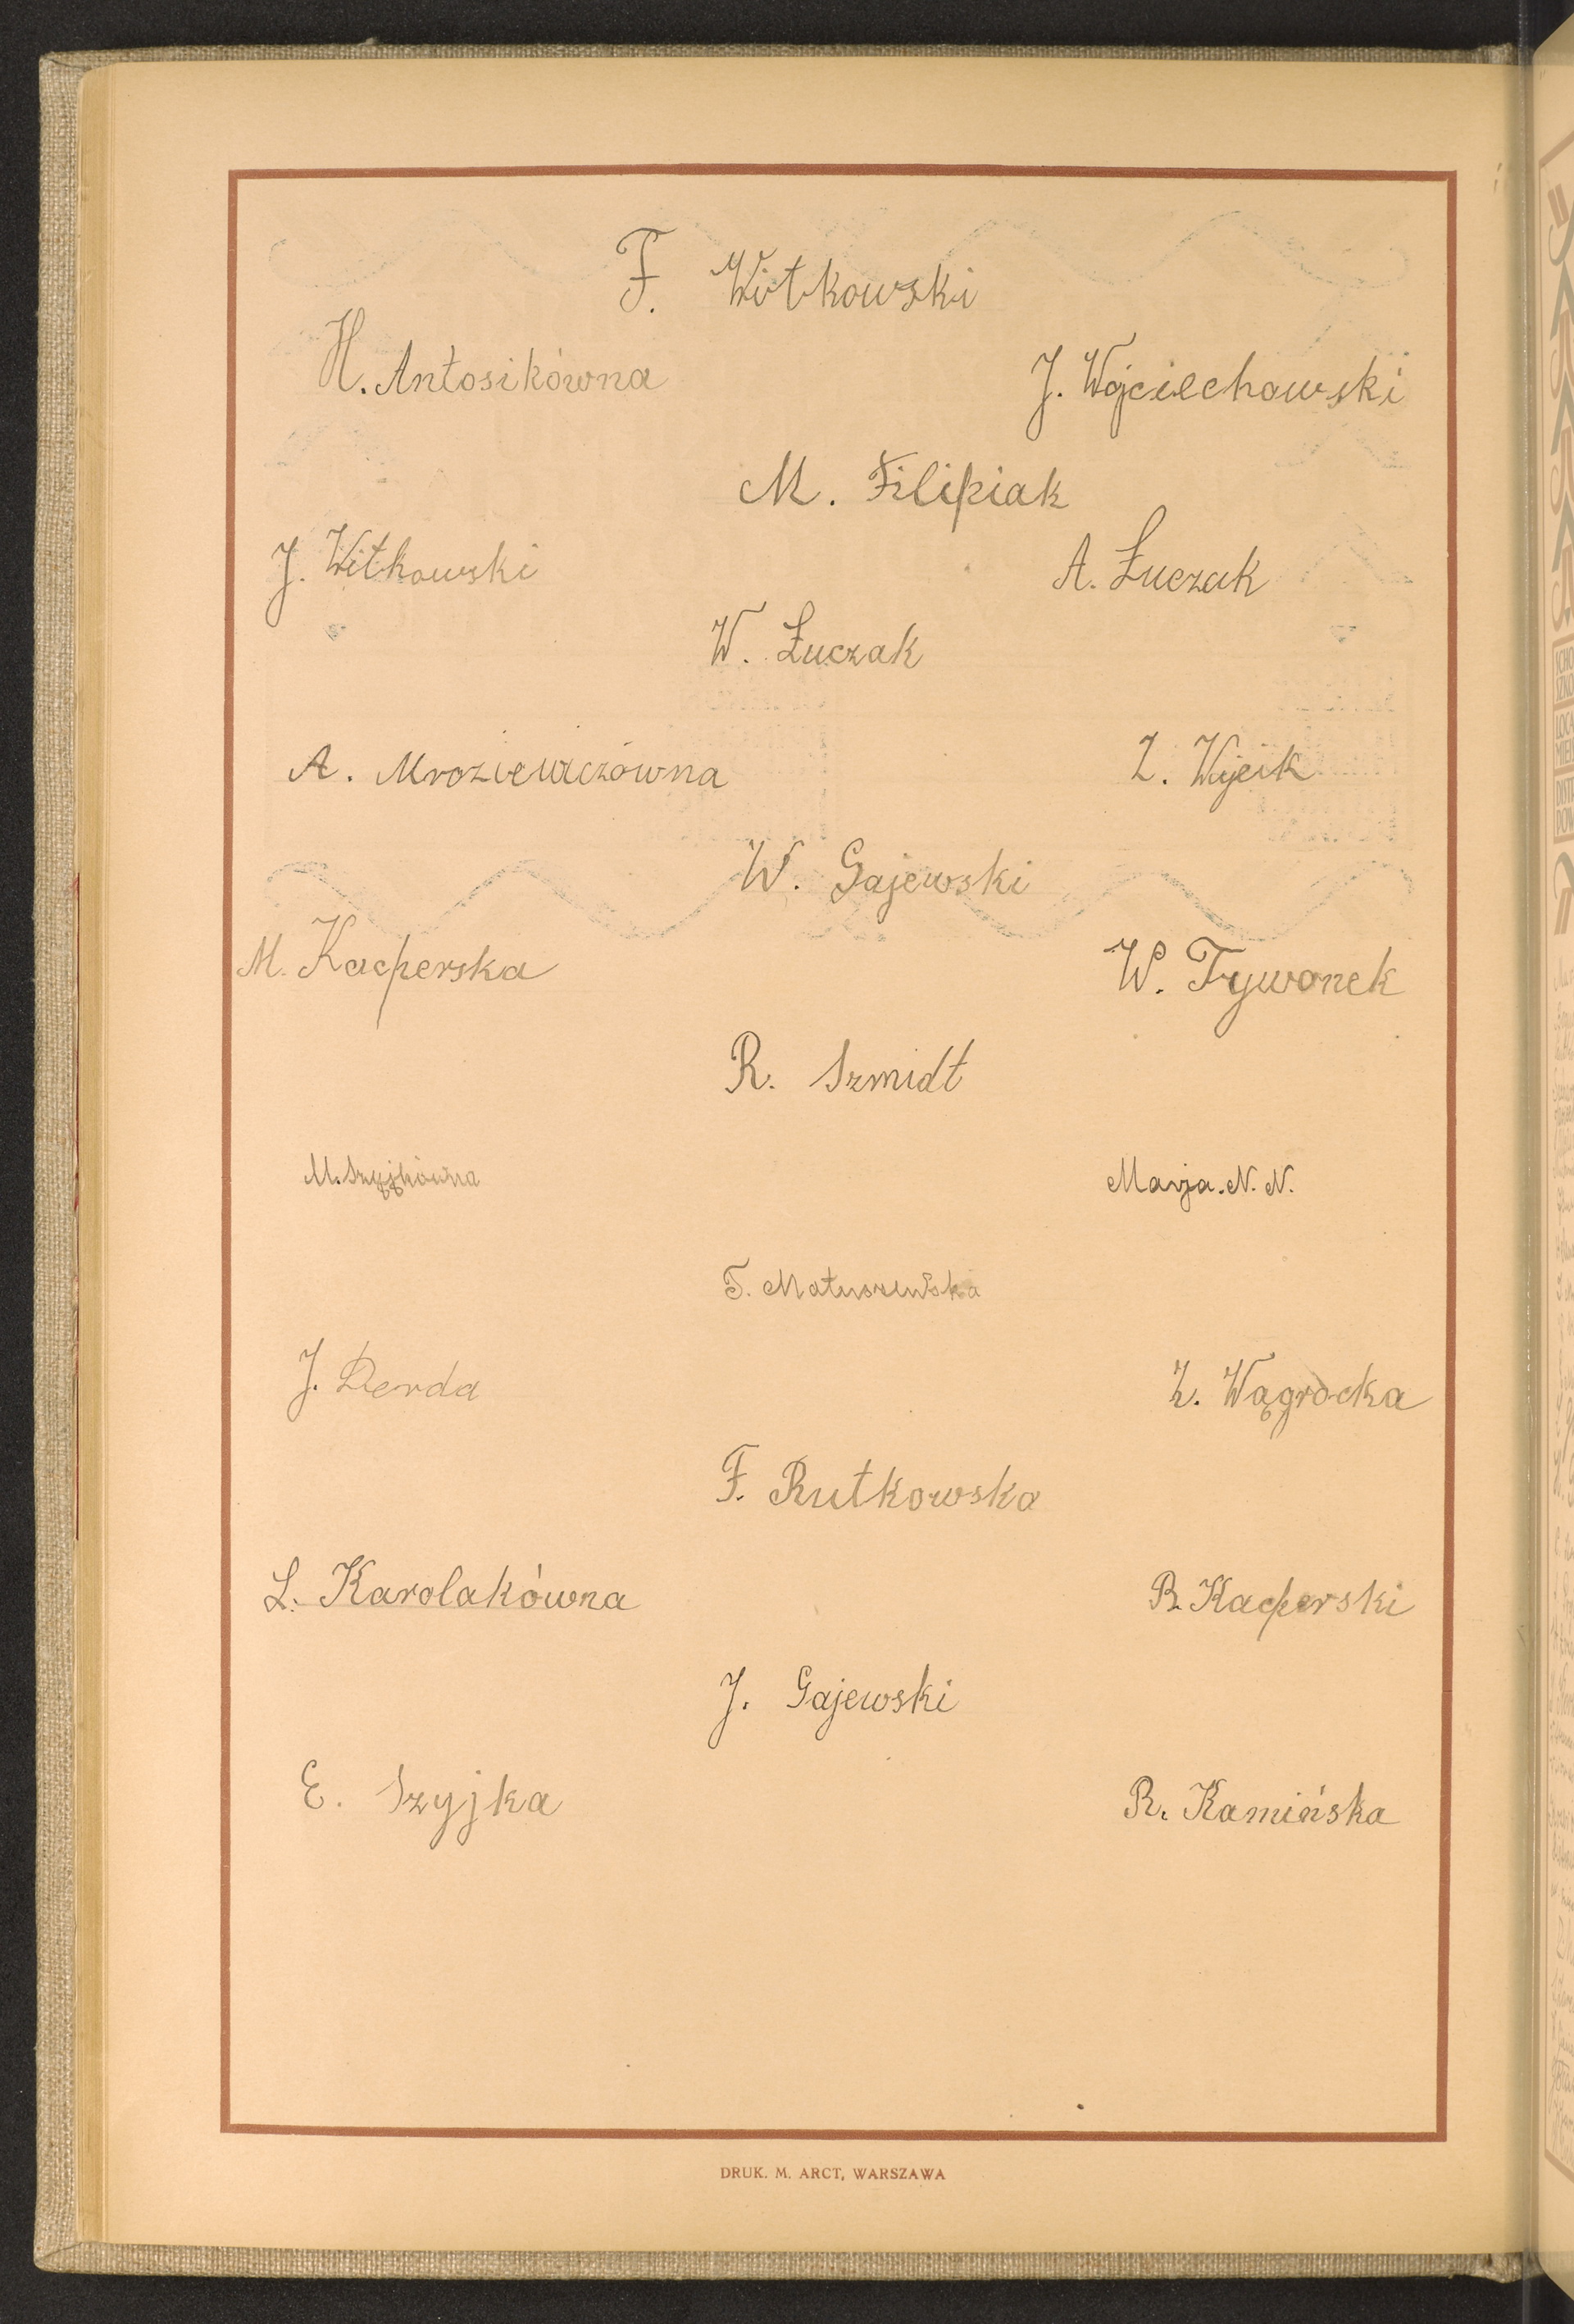 F. Witkowski
H. Antosikówna
J. Wojciechowski
M. Filipiak
J. Witkowski
A. Łuczak
W. Łuczak
A. Mroziewiczówna
Z. Wójcik
W. Gajewski
M. Kacperska
W. Trywonek
R. Szmidt
M. Szyjkówna
Marja. N. N.
T. Matuszewska
J. Derda
Z. Wągrocka
F. Rutkowska
L. Karolakówna
R. Kacperski
J. Gajewski
E. Szyjka
R. Kamińska
DRUK. M. ARCT, WARSZAWA